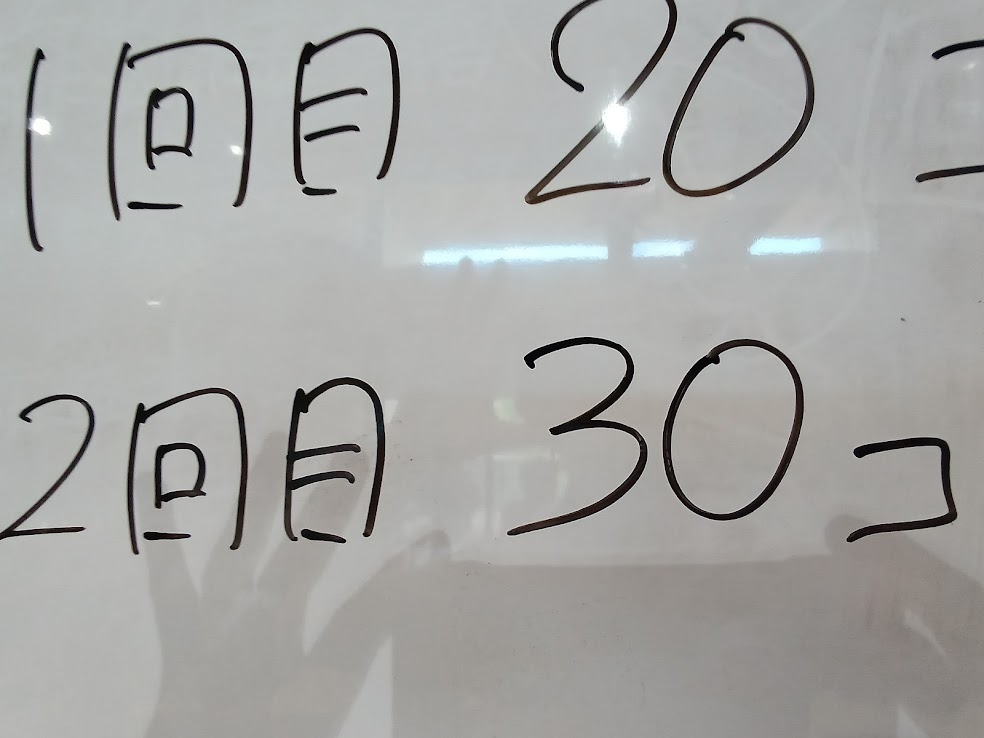 1回目 20コ
2回目 30コ